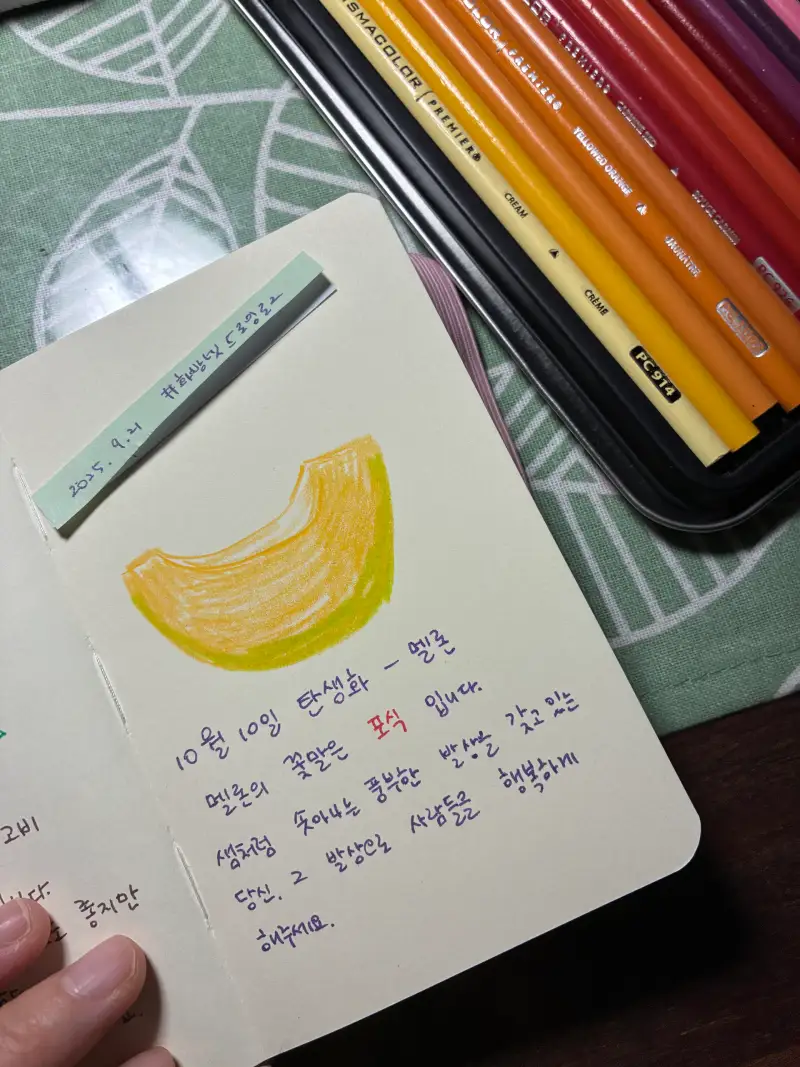 2025. 9. 21 #화방넷 드로잉로그
10월 10일 탄생화 - 멜론
멜론의 꽃말은 포식 입니다.
샘처럼 솟아나는 풍부한 발상을 갖고 있는
당신. 그 발상으로 사람들을 행복하게
해주세요.
고비
니다.
좋지만
PRISMACOLOR | PREMIER®
CREAM CRÈME PC 914
PREMIER®
YELLOWED ORANGE JAUNÂTRE